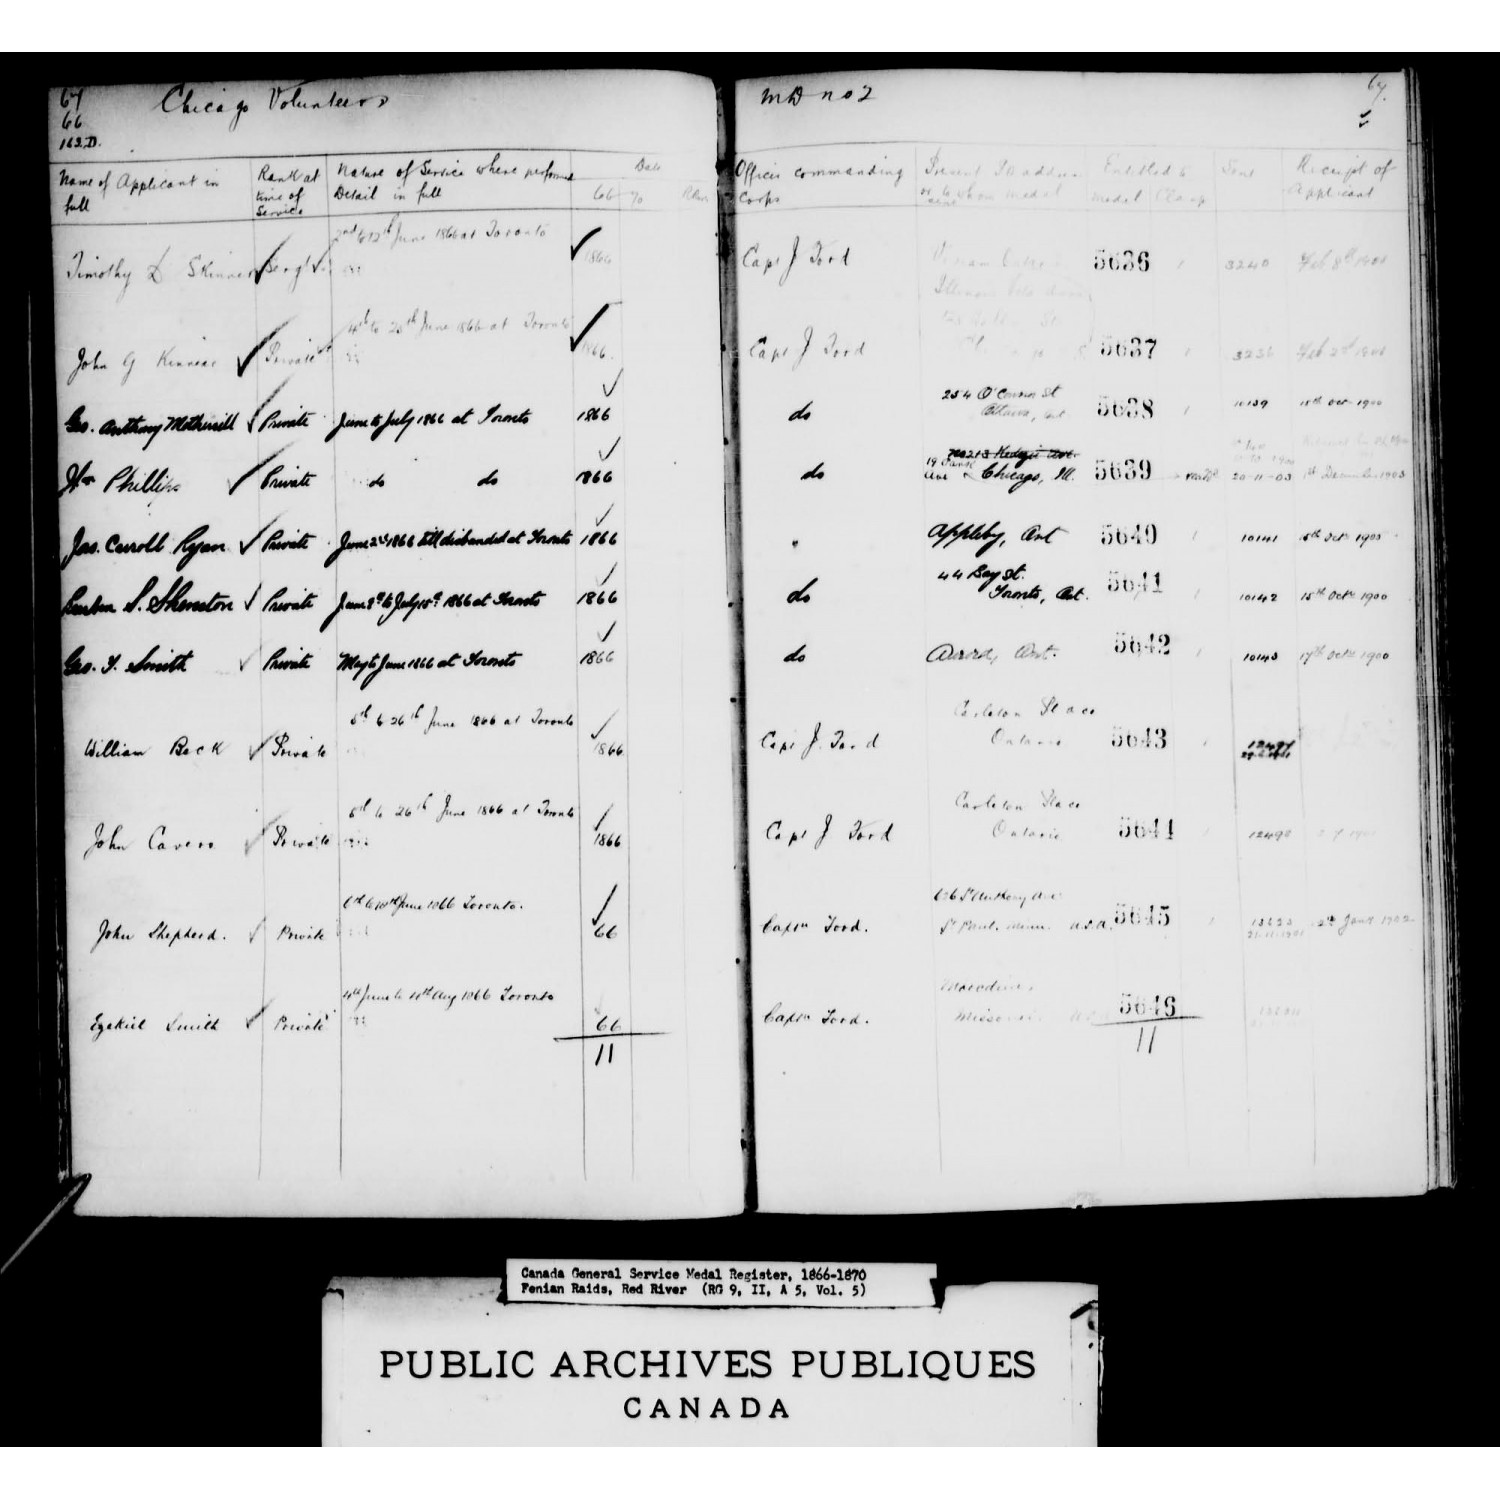 67
66
162.D.
Chicago Volunteers
MD no 2
67.
Name of Applicant in full
Rank at time of Service
Nature of Service where performed Detail in full
Date
66 70
Officer commanding corps
Present P.O. address or to whom medal
Entitled to
medal Clasp
Sent
Receipt of Applicant
2nd to 12th June 1866 at Toronto
Timothy D Skinner Sergt. 1866 Capt J Ford 5636 3240 Feb 8th 1901
4th to 20th June 1866 at Toronto
John G Kinnear Private 1866. Capt J Ford 5637 3236 Feb 2nd 1901
254 O'Connor St
Geo. Anthony Mothersill Private June to July 1866 at Toronto 1866 do Ottawa, Ont 5638 10139 15th Oct 1900
Wm Phillips Private do do 1866 do 19 Park Ave Chicago, Ill. 5639 20-11-03 1st December 1903
Jas. Carroll Ryan Private June 2nd 1866 till disbanded at Toronto 1866 " Appleby, Ont 5640 10141 15th Oct 1900
44 Bay St.
S. Shenston Private June 2nd to July 15th 1866 at Toronto 1866 do Toronto, Ont. 5641 10142 15th Octr 1900
Geo. T. Smith Private May to June 1866 at Toronto 1866 do Ont. 5642 10143 17th Octr 1900
5th to 26th June 1866 at Toronto Carleton Place
William Beck Private 1866 Capt J. Ford Ontario 5643
5th to 26th June 1866 at Toronto Carleton Place
John Cavers Private 1866 Capt J Ford Ontario 5644 12498
6th to 10th June 1866 Toronto. 626 St Anthony Ave
John Shepherd. Private 66 Captn Ford. St Paul. Minn. U.S.A. 5645 13623 Jany 1902
4th June to 4th Aug 1866 Toronto
Ezekiel Smith Private 66 Captn Ford. Missouri 5646
11
11
Canada General Service Medal Register, 1866-1870
Fenian Raids, Red River (RG 9, II, A 5, Vol. 5)
PUBLIC ARCHIVES PUBLIQUES
CANADA